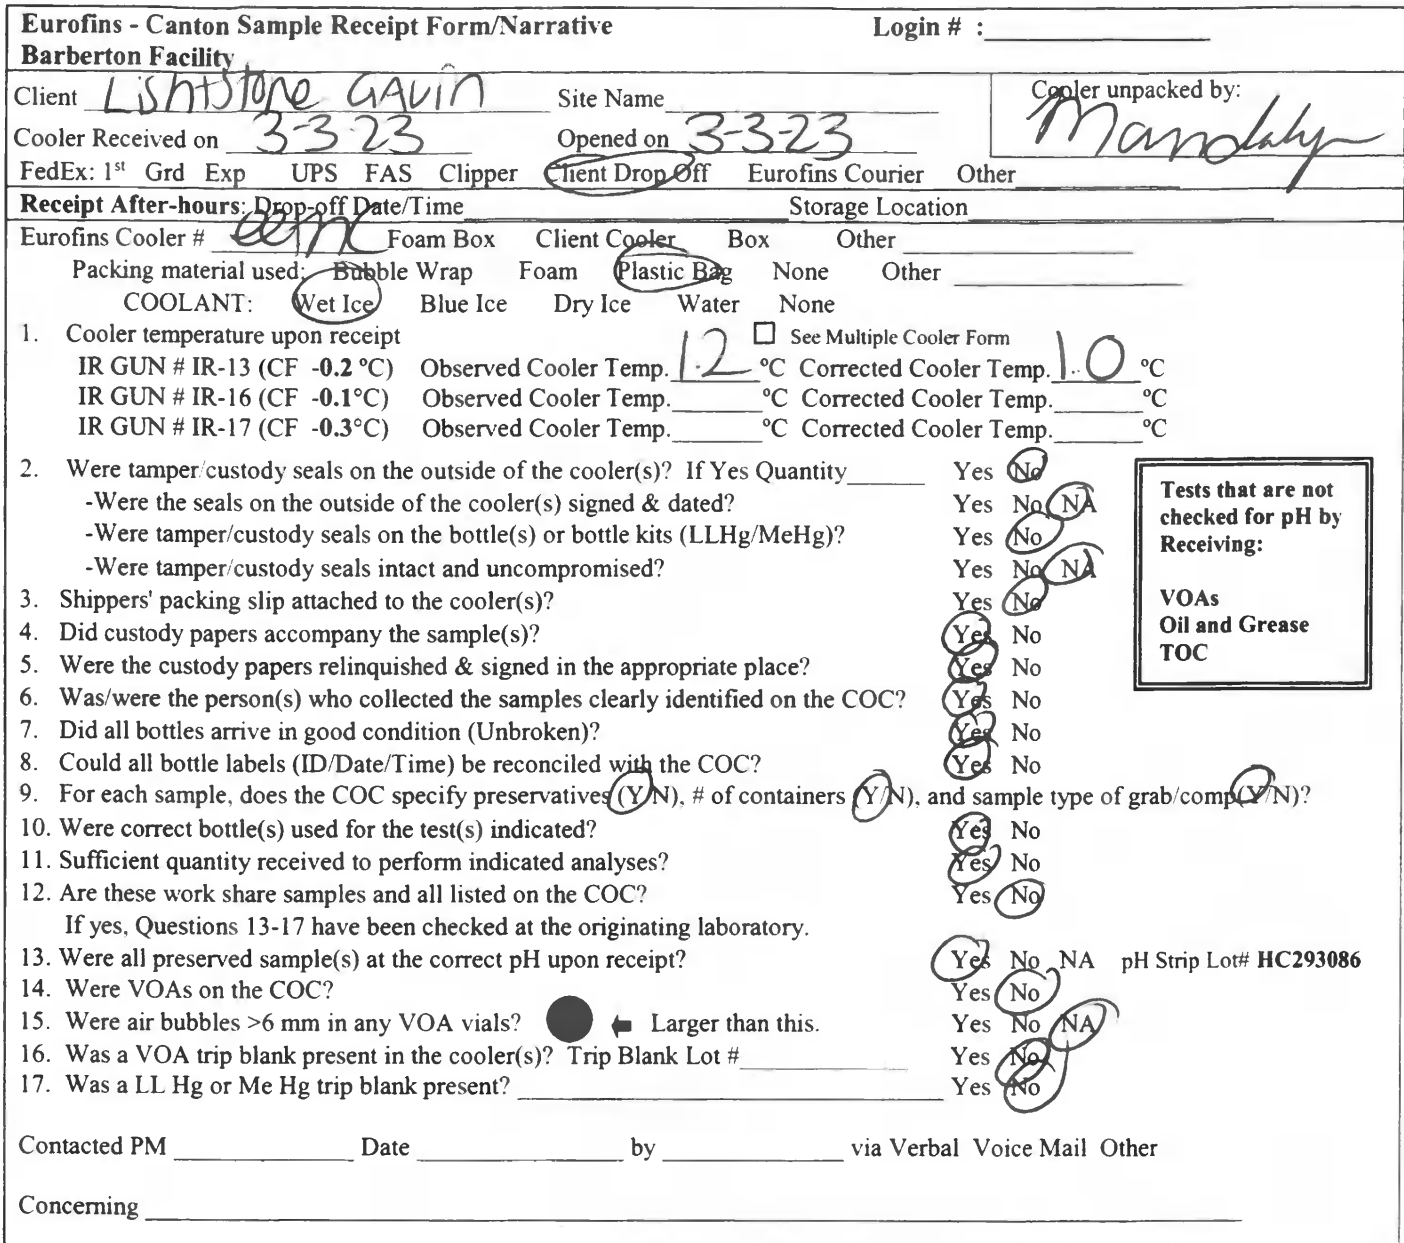 Eurofins - Canton Sample Receipt Form/Narrative Login # :
Barberton Facility
Client Lishtstone GAVin Site Name Cooler unpacked by:
Cooler Received on 3-3-23 Opened on 3-3-23
FedEx: 1st Grd Exp UPS FAS Clipper Client Drop Off Eurofins Courier Other
Receipt After-hours: Drop-off Date/Time Storage Location
Eurofins Cooler # Foam Box Client Cooler Box Other
Packing material used: Bubble Wrap Foam Plastic Bag None Other
COOLANT: Wet Ice Blue Ice Dry Ice Water None
1. Cooler temperature upon receipt ☐ See Multiple Cooler Form
IR GUN # IR-13 (CF -0.2 °C) Observed Cooler Temp. 1.2 °C Corrected Cooler Temp. 1.0 °C
IR GUN # IR-16 (CF -0.1°C) Observed Cooler Temp. °C Corrected Cooler Temp. °C
IR GUN # IR-17 (CF -0.3°C) Observed Cooler Temp. °C Corrected Cooler Temp. °C
2. Were tamper/custody seals on the outside of the cooler(s)? If Yes Quantity Yes No
-Were the seals on the outside of the cooler(s) signed & dated? Yes No NA
-Were tamper/custody seals on the bottle(s) or bottle kits (LLHg/MeHg)? Yes No
-Were tamper/custody seals intact and uncompromised? Yes No NA
3. Shippers' packing slip attached to the cooler(s)? Yes No
4. Did custody papers accompany the sample(s)? Yes No
5. Were the custody papers relinquished & signed in the appropriate place? Yes No
6. Was/were the person(s) who collected the samples clearly identified on the COC? Yes No
7. Did all bottles arrive in good condition (Unbroken)? Yes No
8. Could all bottle labels (ID/Date/Time) be reconciled with the COC? Yes No
9. For each sample, does the COC specify preservatives (Y/N), # of containers (Y/N), and sample type of grab/comp(Y/N)?
10. Were correct bottle(s) used for the test(s) indicated? Yes No
11. Sufficient quantity received to perform indicated analyses? Yes No
12. Are these work share samples and all listed on the COC? Yes No
If yes, Questions 13-17 have been checked at the originating laboratory.
13. Were all preserved sample(s) at the correct pH upon receipt? Yes No NA pH Strip Lot# HC293086
14. Were VOAs on the COC? Yes No
15. Were air bubbles >6 mm in any VOA vials? Larger than this. Yes No NA
16. Was a VOA trip blank present in the cooler(s)? Trip Blank Lot # Yes No
17. Was a LL Hg or Me Hg trip blank present? Yes No
Tests that are not
checked for pH by
Receiving:
VOAs
Oil and Grease
TOC
Contacted PM Date by via Verbal Voice Mail Other
Concerning